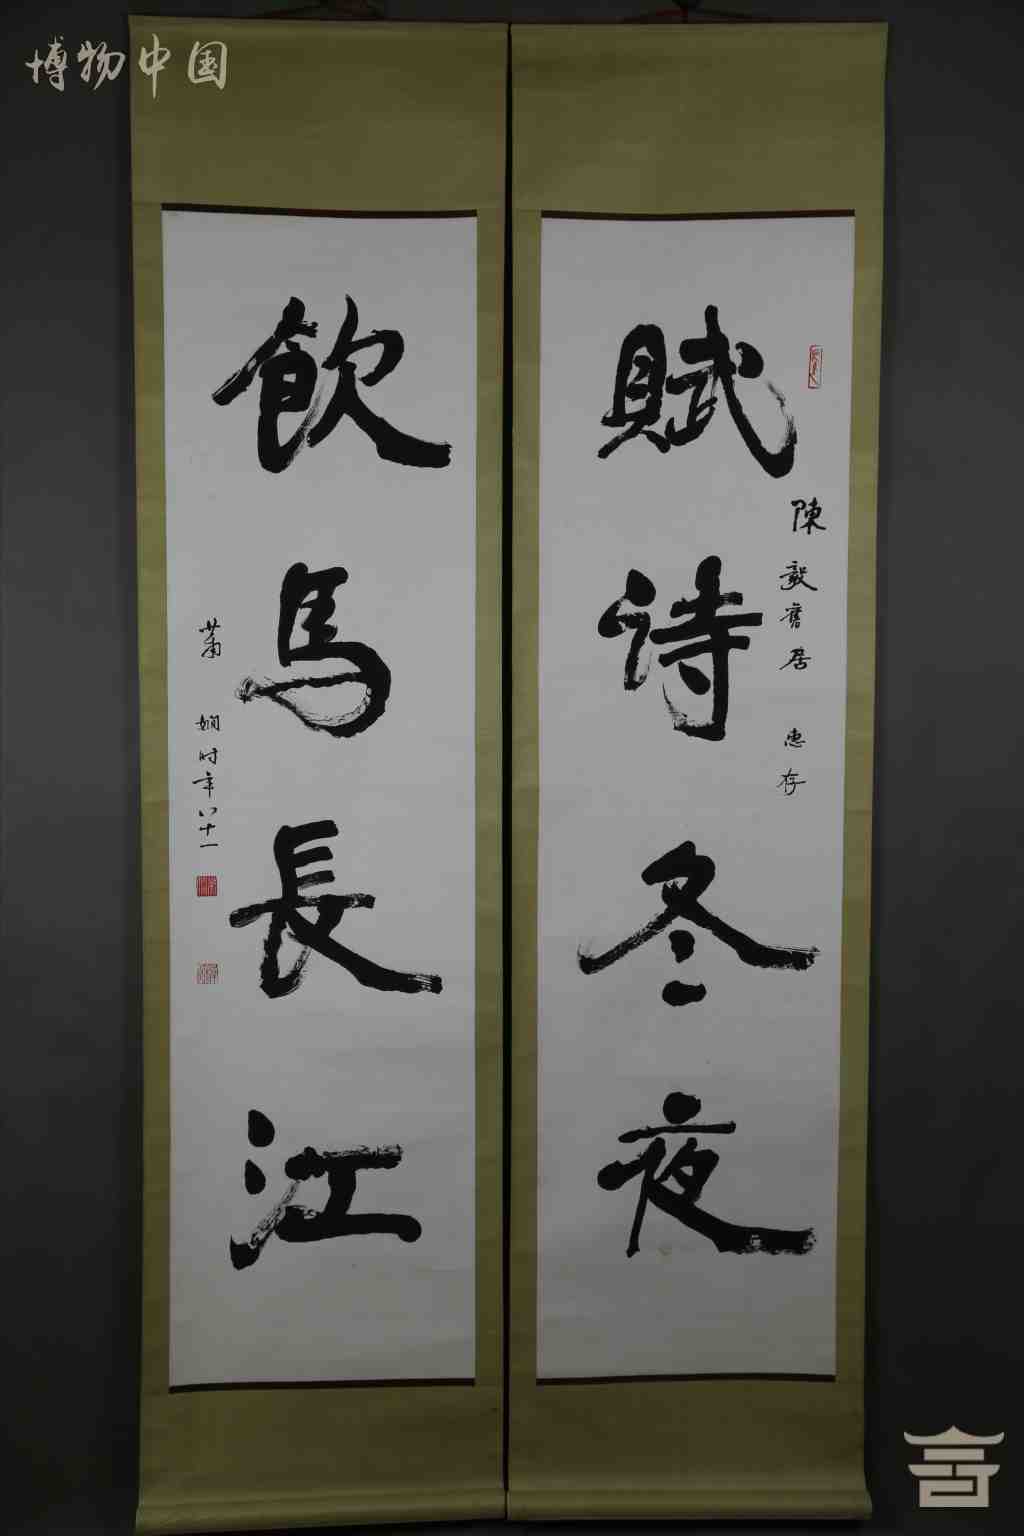 博物中国
賦诗冬夜
陳毅舊居 惠存
飲馬長江
萧娴时年八十一